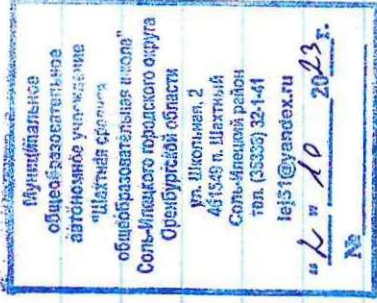 Муниципальное
общеобразовательное
автономное учреждение
"Шахтная средняя
общеобразовательная школа"
Соль-Илецкого городского округа
Оренбургской области
ул. Школьная, 2
461549 п. Шахтный
Соль-Илецкий район
тел. (35336) 32-1-41
lej51@yandex.ru
"2" 10 2023 г.
№